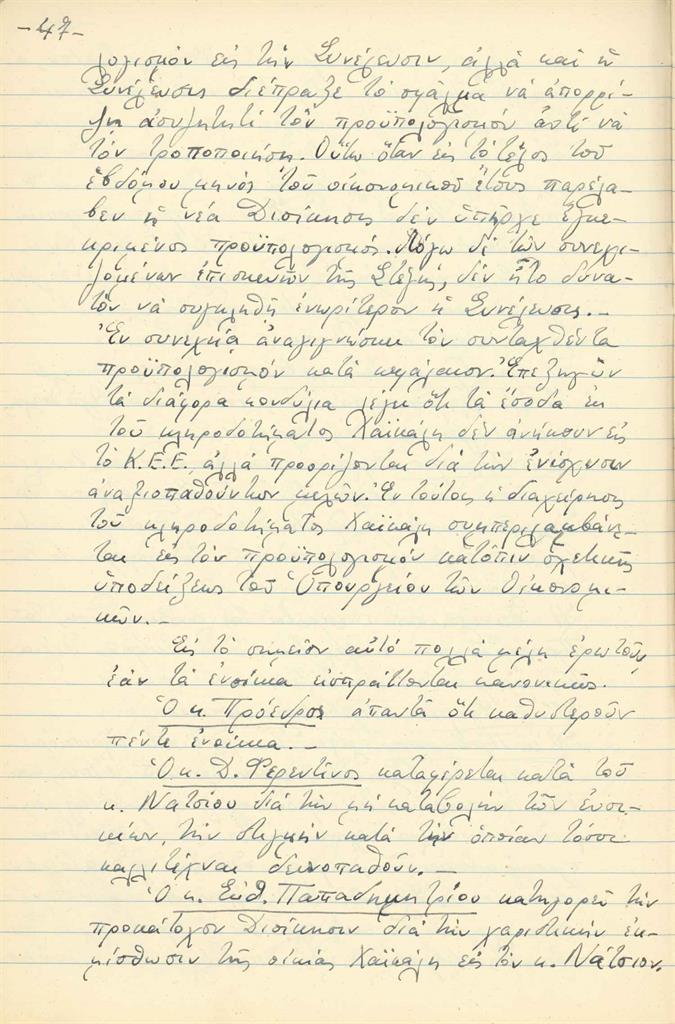 -47-
λογισμόν εἰς τήν Συνέλευσιν, ἀλλά καί ἡ
Συνέλευσις διέπραξε τό σφάλμα νά ἀπορρί-
ψη ἀσυζητητί τόν προϋπολογισμόν ἀντί νά
τόν τροποποιήση. Οὕτω ὅταν εἰς τό τέλος τοῦ
ἑβδόμου μηνός τοῦ οἰκονομικοῦ ἔτους παρέλα-
βεν ἡ νέα Διοίκησις δέν ὑπῆρχε ἐγκε-
κριμένος προϋπολογισμός. Λόγω δέ τῶν συνεχι-
ζομένων ἐπισκευῶν τῆς Στέγης, δέν ἦτο δυνα-
τόν νά συγκληθῆ ἐνωρίτερον ἡ Συνέλευσις.-
Ἐν συνεχεία ἀναγιγνώσκει τόν συνταχθέντα
προϋπολογισμόν κατά κεφάλαιον. Ἐπεξηγῶν
τά διάφορα κονδύλια λέγει ὅτι τά ἔσοδα ἐκ
τοῦ κληροδοτήματος Χαϊκάλη δέν ἀνήκουν εἰς
τό Κ.Ε.Ε., ἀλλά προορίζονται διά τήν ἐνίσχυσιν
ἀναξιοπαθούντων μελῶν. Ἐν τούτοις ἡ διαχείρησις
τοῦ κληροδοτήματος Χαϊκάλη συμπεριλαμβάνε-
ται εἰς τόν προϋπολογισμόν κατόπιν σχετικῆς
ὑποδείξεως τοῦ Ὑπουργείου τῶν Οἰκονομι-
κῶν.-
Εἰς τό σημεῖον αὐτό πολλά μέλη ἐρωτοῦν
ἐάν τά ἐνοίκια εἰσπράττονται κανονικῶς.
Ὁ κ. Πρόεδρος ἀπαντᾶ ὅτι καθυστεροῦν
πέντε ἐνοίκια.-
Ὁ κ. Δ. Φερεντῖνος καταφέρεται κατά τοῦ
κ. Νάτσιου διά τήν μή καταβολήν τῶν ἐνοι-
κίων, τήν στιγμήν κατά τήν ὁποίαν τόσοι
καλλιτέχναι δεινοπαθοῦν.-
Ὁ κ. Εὐθ. Παπαδημητρίου κατηγορεῖ τήν
προκάτοχον Διοίκησιν διά τήν χαριστικήν ἐκ-
μίσθωσιν τῆς οἰκίας Χαϊκάλη εἰς τόν κ. Νάτσιον.